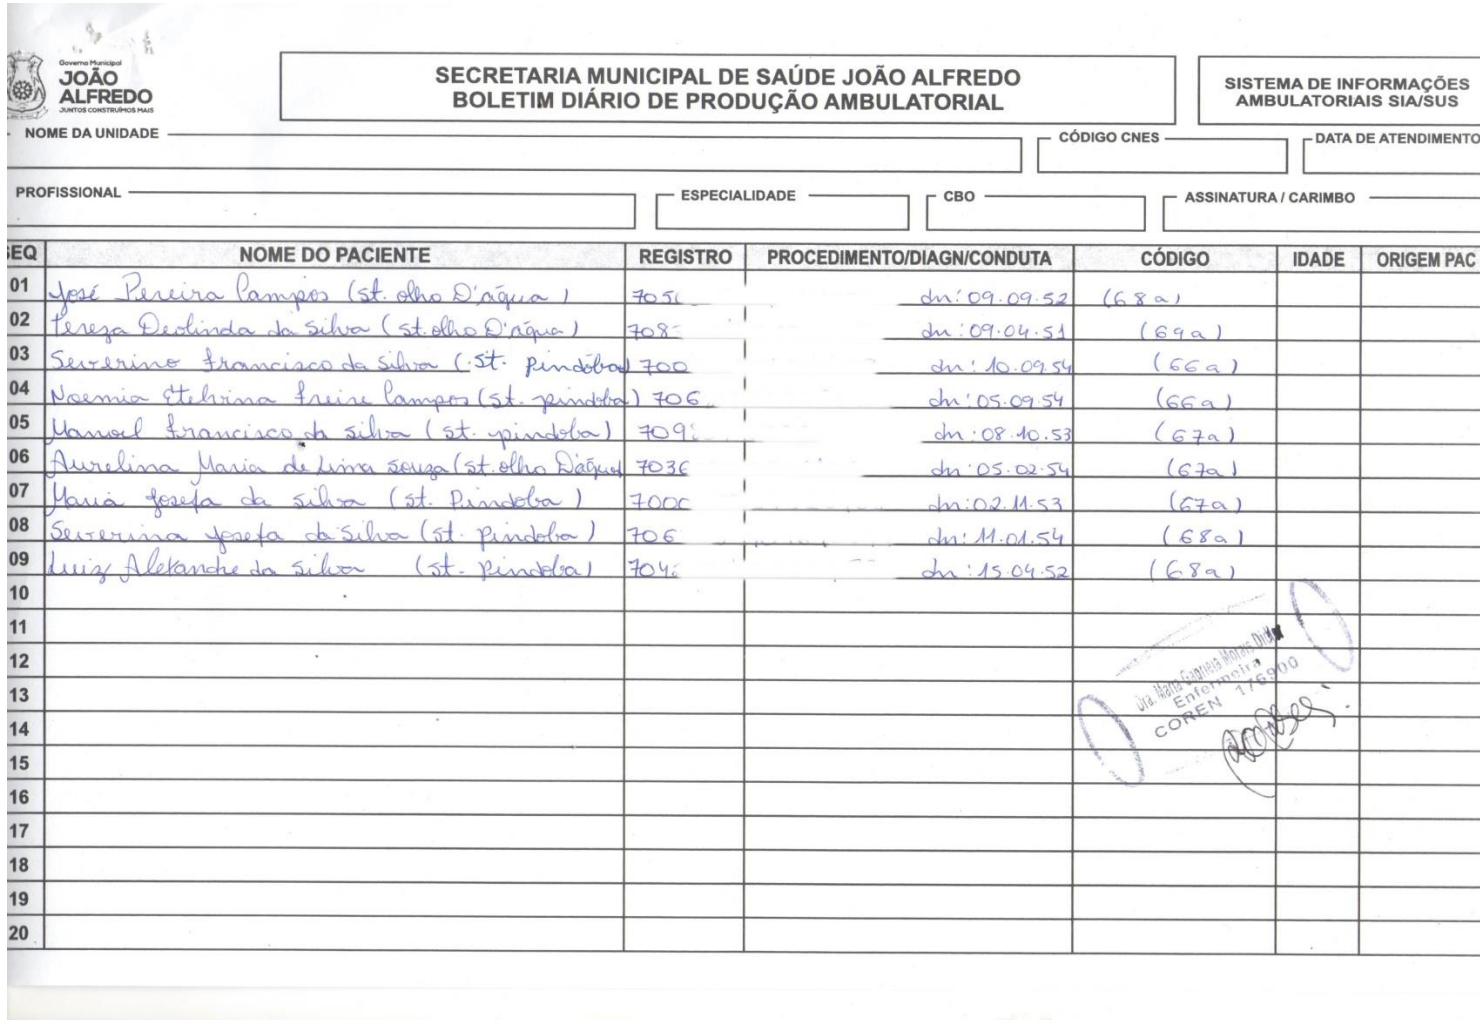 Governo Municipal
JOÃO
ALFREDO
JUNTOS CONSTRUÍMOS MAIS
SECRETARIA MUNICIPAL DE SAÚDE JOÃO ALFREDO
BOLETIM DIÁRIO DE PRODUÇÃO AMBULATORIAL
SISTEMA DE INFORMAÇÕES
AMBULATORIAIS SIA/SUS
NOME DA UNIDADE CÓDIGO CNES DATA DE ATENDIMENTO
PROFISSIONAL ESPECIALIDADE CBO ASSINATURA / CARIMBO
SEQ NOME DO PACIENTE REGISTRO PROCEDIMENTO/DIAGN/CONDUTA CÓDIGO IDADE ORIGEM PAC
01 José Pereira Campos (st. olho D'água) 705 dn: 09.09.52 (68a)
02 Tereza Deolinda da Silva (st. olho D'água) 708 dn: 09.04.51 (69a)
03 Severino Francisco da Silva (st. Pindóba) 700 dn: 10.09.54 (66a)
04 Noemia Etelvina Freire Campos (st. pindoba) 706 dn: 05.09.54 (66a)
05 Manoel Francisco da Silva (st. pindoba) 709 dn: 08.10.53 (67a)
06 Aurelina Maria de Lima Souza (st. olho D'água) 703 dn: 05.02.54 (67a)
07 Maria Josefa da Silva (st. Pindoba) 700 dn: 02.11.53 (67a)
08 Severina Josefa da Silva (st. Pindoba) 706 dn: 11.01.54 (68a)
09 Luiz Alexandre da Silva (st. Pindoba) 704 dn: 15.04.52 (68a)
10
11
12
13
14
15
16
17
18
19
20
Dra. Maria Gabriela Morais
Enfermeira
COREN 176900